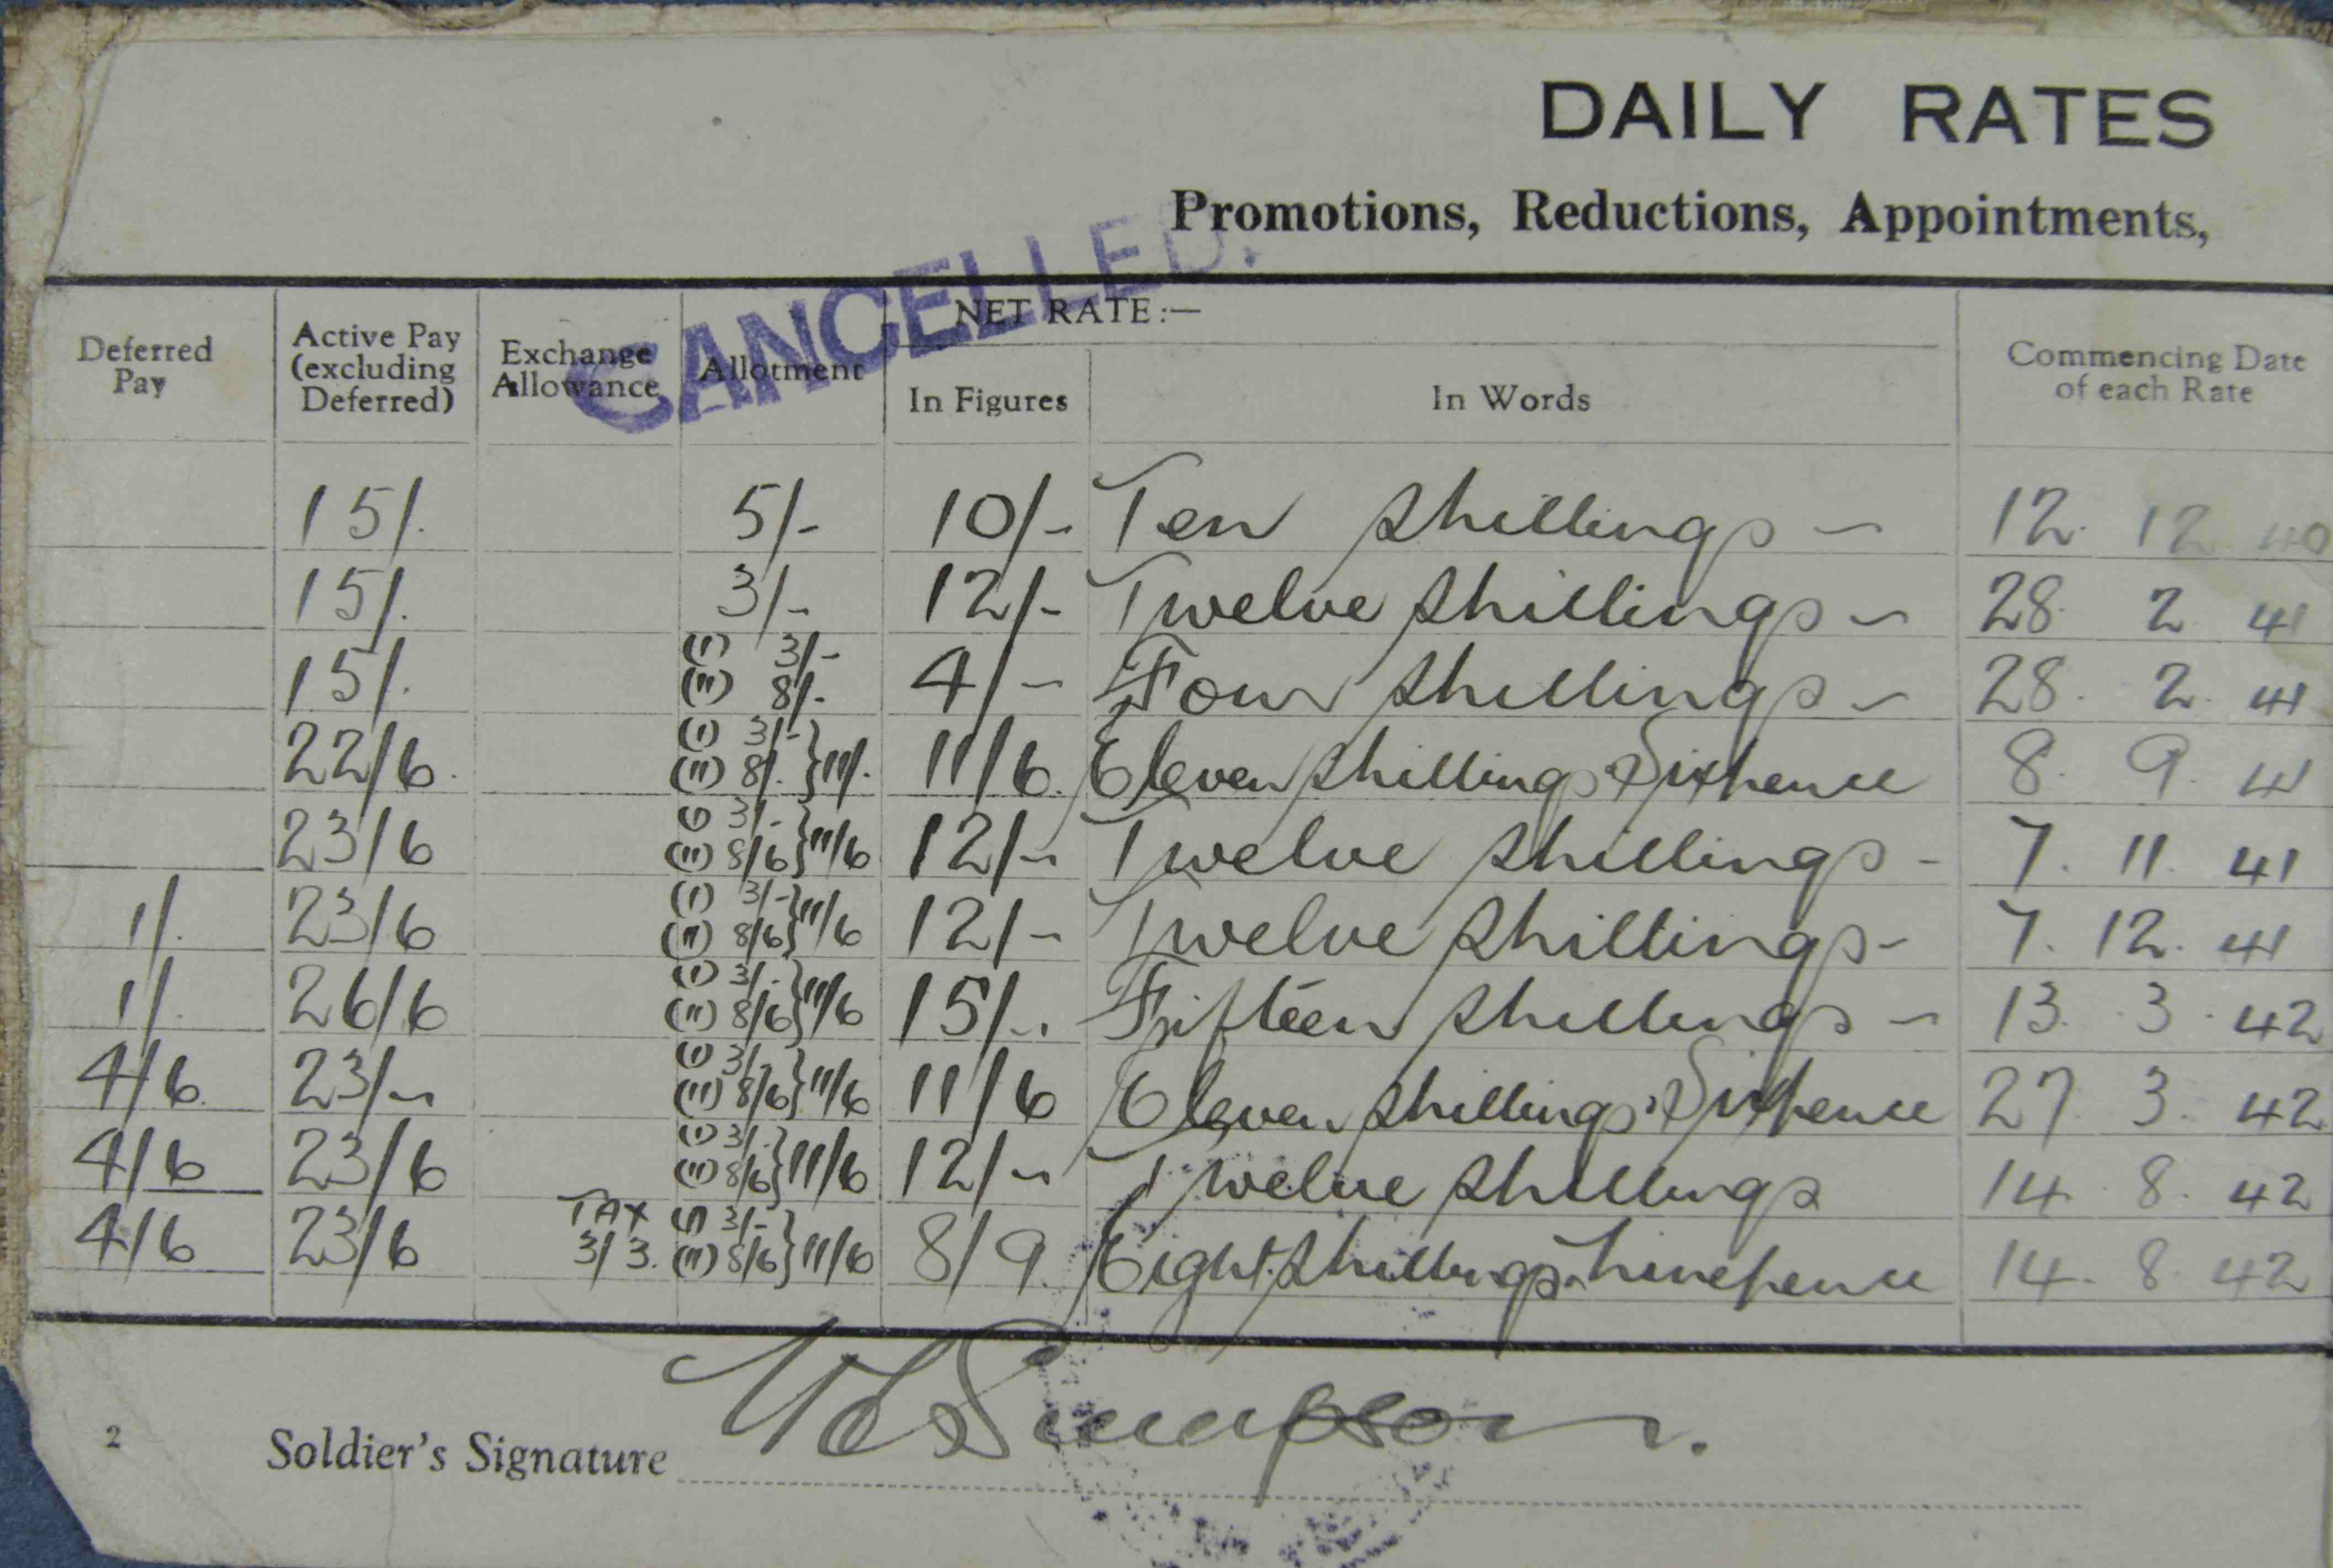 DAILY RATES
Promotions, Reductions, Appointments,
CANCELLED.
NET RATE :—
Deferred Pay
Active Pay (excluding Deferred)
Exchange Allowance
Allotment
In Figures
In Words
Commencing Date of each Rate
15/. 5/- 10/- Ten shillings – 12. 12 40
15/. 3/- 12/- Twelve shillings – 28. 2 41
15/. (I) 3/- (II) 8/- 4/- Four shillings – 28. 2. 41
22/6. (I) 3/- (II) 8/. } 11/. 11/6. Eleven shillings & Sixpence 8. 9. 41
23/6 (I) 3/- (II) 8/6 } 11/6 12/- Twelve shillings - 7. 11. 41
1/. 23/6 (I) 3/- (II) 8/6 } 11/6 12/- Twelve shillings - 7. 12. 41
1/. 26/6 (I) 3/- (II) 8/6 } 11/6 15/- Fifteen shillings – 13. 3. 42
4/6. 23/- (I) 3/- (II) 8/6 } 11/6 11/6 Eleven shillings & Sixpence 27. 3. 42
4/6 23/6 (I) 3/- (II) 8/6 } 11/6 12/- Twelve shillings 14. 8. 42
4/6 23/6 TAX 3/3. (I) 3/- (II) 8/6 } 11/6 8/9. Eight shillings ninepence 14. 8. 42
2 Soldier's Signature Simpson.